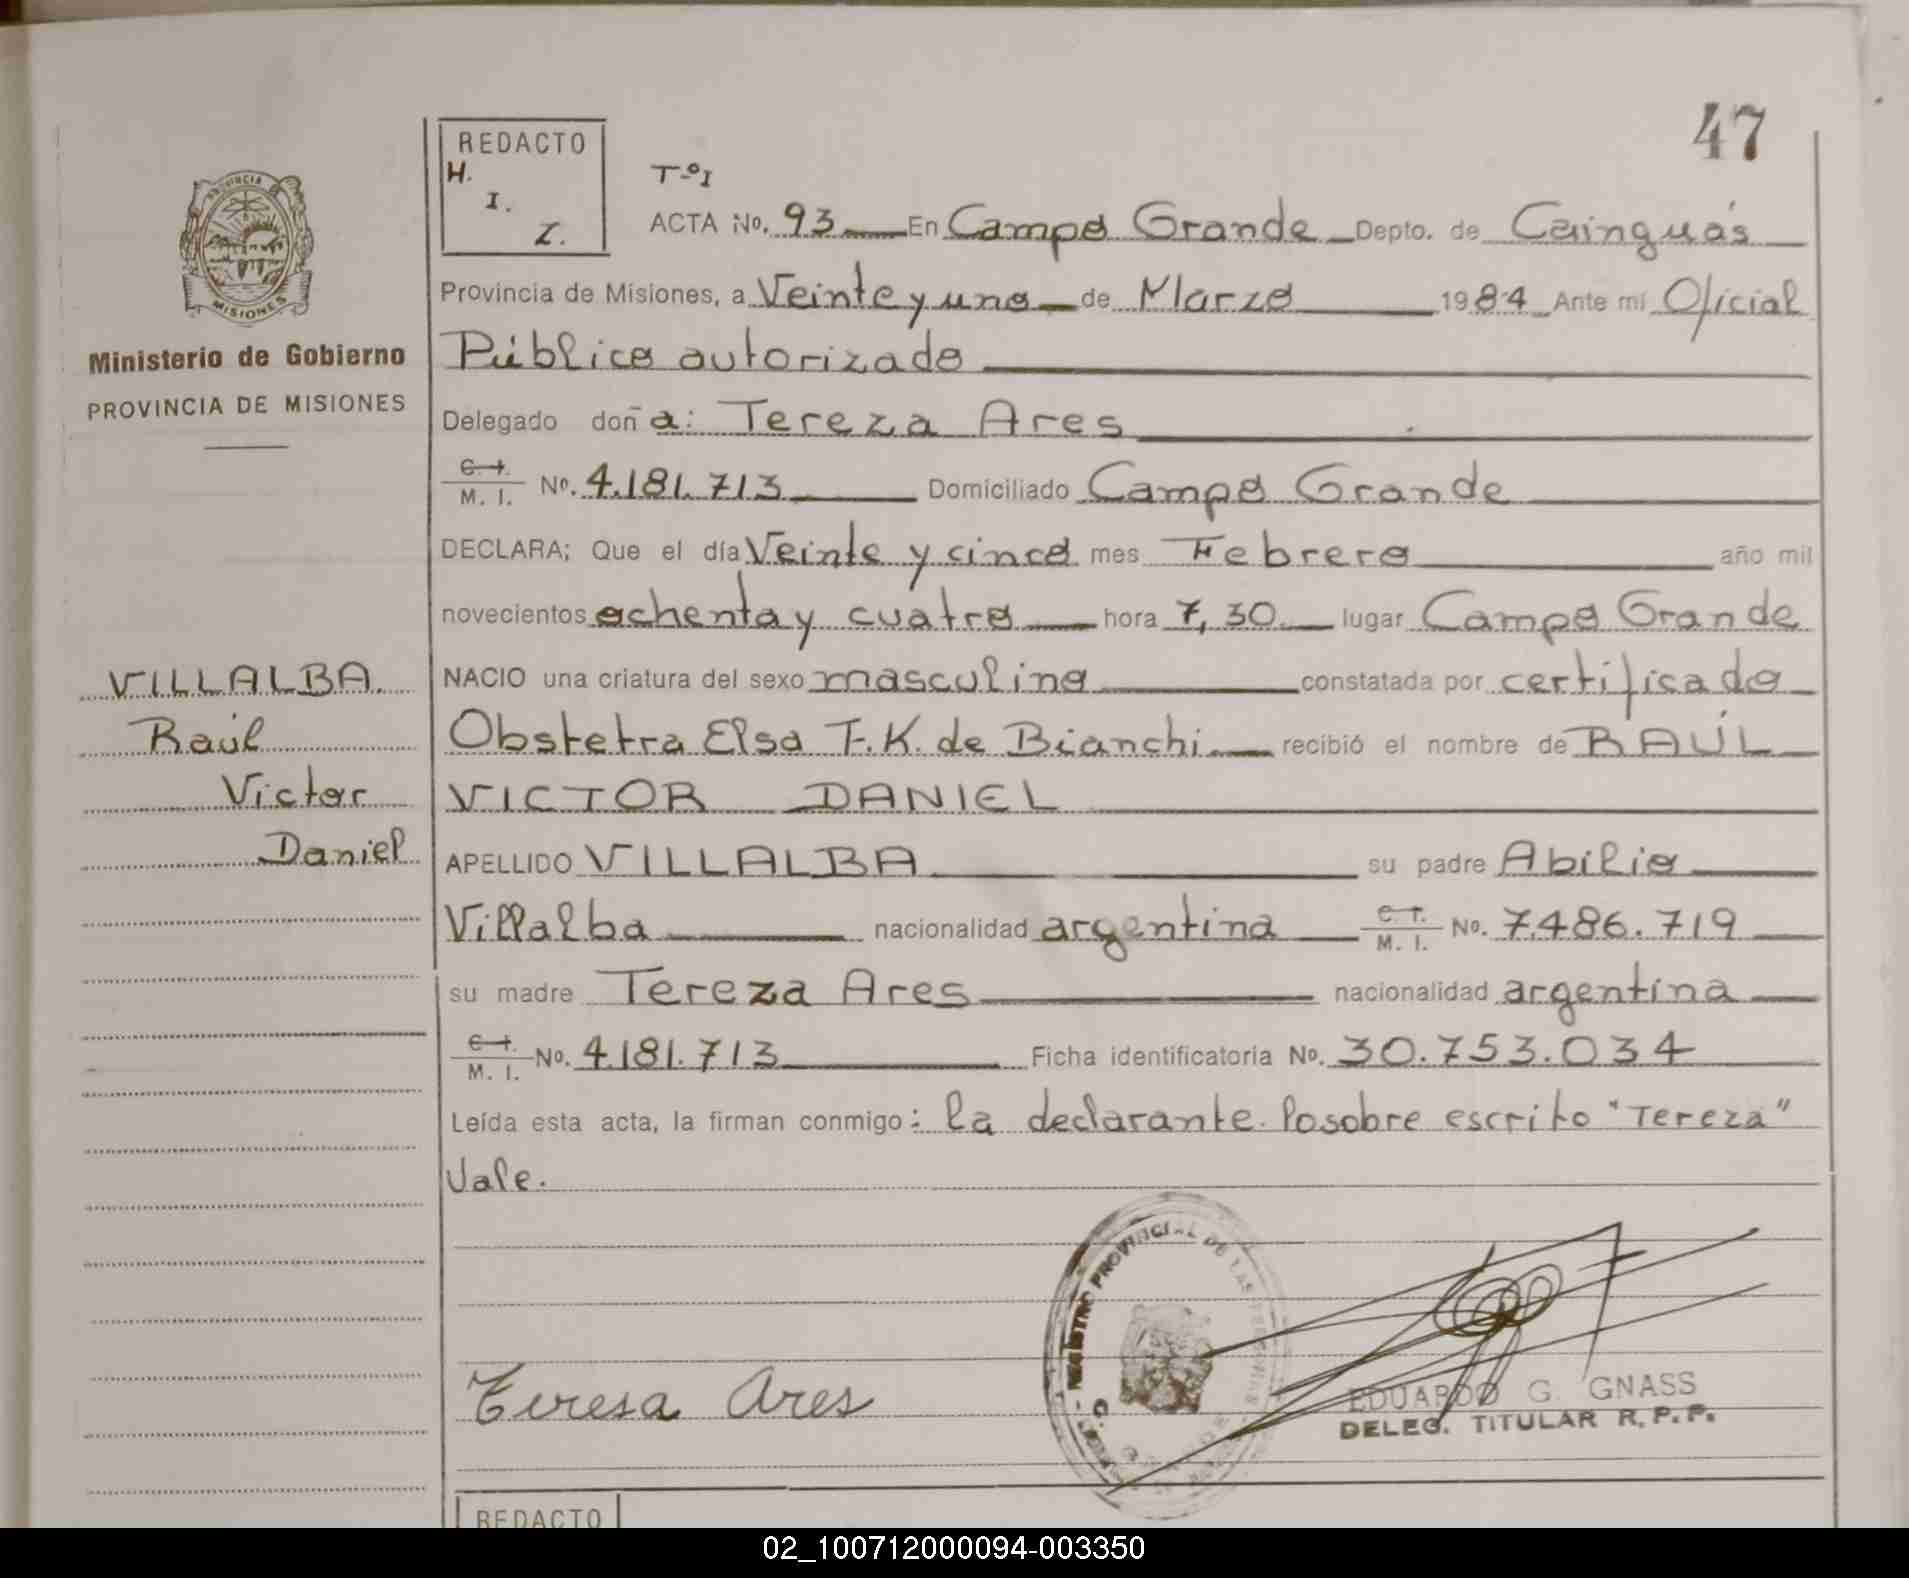 47
REDACTO
H.
I.
Z.
T-º I
ACTA No. 93 En Campo Grande Depto. de Cainguás
Provincia de Misiones, a Veinte y uno de Marzo 1984 Ante mí Oficial
Público autorizado
Delegado doña: Tereza Ares
C. I.
M. I. No. 4.181.713 Domiciliado Campo Grande
DECLARA; Que el día Veinte y cinco mes Febrero año mil
novecientos ochenta y cuatro hora 7,30 lugar Campo Grande
NACIO una criatura del sexo masculino constatada por certificado
Obstetra Elsa F. K. de Bianchi recibió el nombre de RAÚL
VICTOR DANIEL
APELLIDO VILLALBA su padre Abilio
Villalba nacionalidad argentina C. I. M. I. No. 7.486.719
su madre Tereza Ares nacionalidad argentina
C. I.
M. I. No. 4.181.713 Ficha identificatoria No. 30.753.034
Leída esta acta, la firman conmigo: la declarante. Lo sobre escrito "Tereza"
Vale.
PROVINCIA
MISIONES
Ministerio de Gobierno
PROVINCIA DE MISIONES
VILLALBA.
Raúl
Victor
Daniel
REGISTRO PROVINCIAL DE LAS PERSONAS
Teresa Ares
EDUARDO G. GNASS
DELEG. TITULAR R. P. P.
REDACTO
02_100712000094-003350